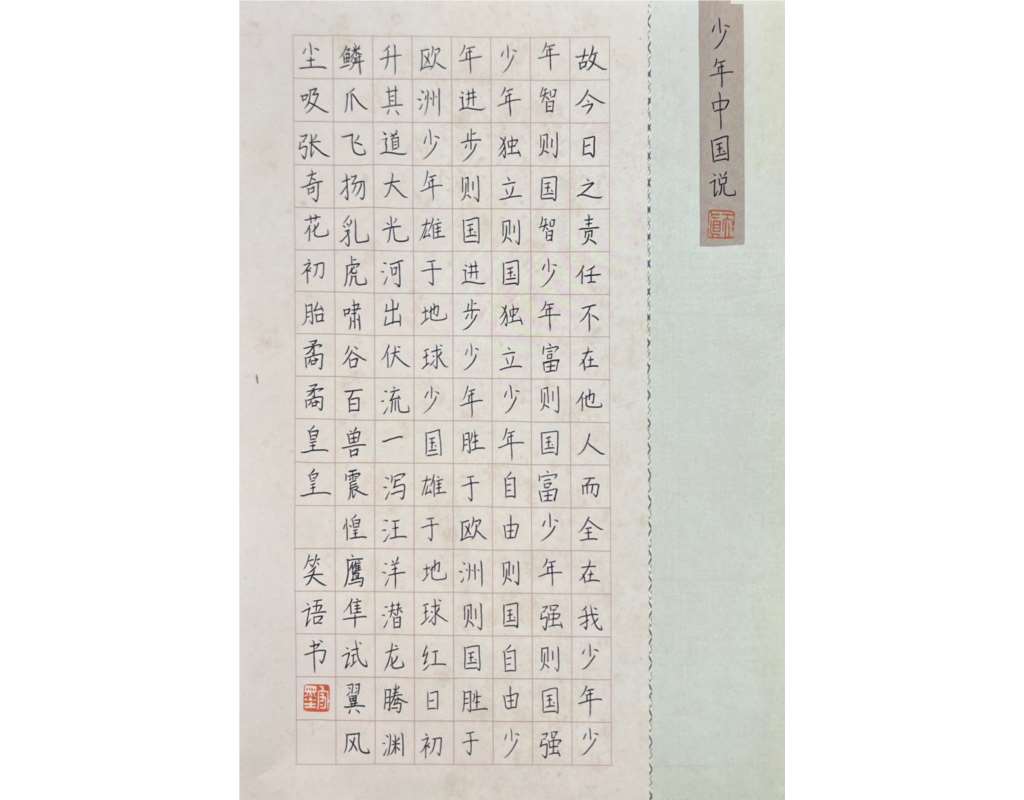 少年中国说
故今日之责任不在他人而全在我少年少
年智则国智少年富则国富少年强则国强
少年独立则国独立少年自由则国自由少
年进步则国进步少年胜于欧洲则国胜于
欧洲少年雄于地球少国雄于地球红日初
升其道大光河出伏流一泻汪洋潜龙腾渊
鳞爪飞扬乳虎啸谷百兽震惶鹰隼试翼风
尘吸张奇花初胎矞矞皇皇 笑语书